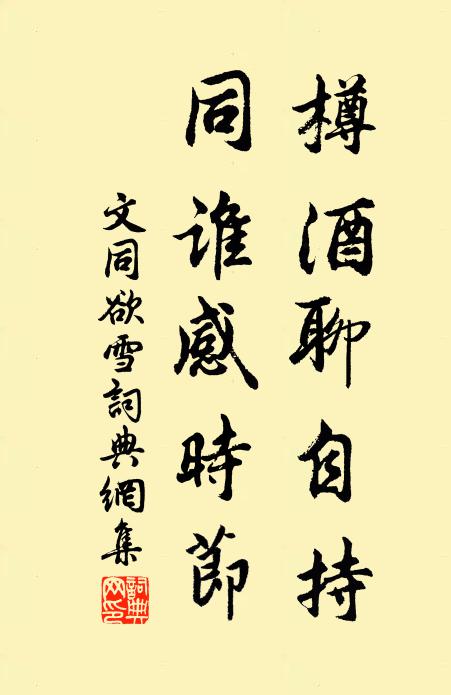 樽酒聊自持
同誰感時節
文同欲雪詞典網集
詞典網印